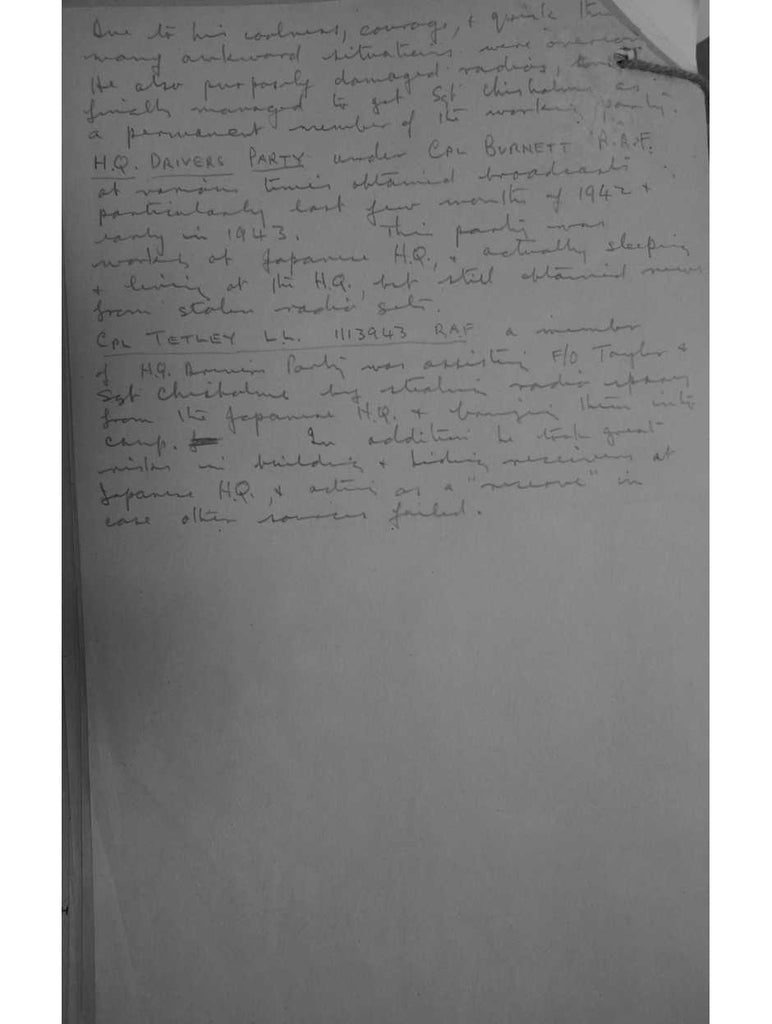 Due to his coolness, courage, & quick
many awkward situations were
He also purposely damaged radios,
finally managed to get Sgt Chisholme as
a permanent member of the working party.
H.Q. DRIVERS PARTY under CPL BURNETT R.A.F.
at various times obtained broadcasts
particularly last few months of 1942 &
early in 1943. This party was
working at Japanese H.Q., & actually sleeping
& living at the H.Q., but still obtained news
from stolen radio sets.
CPL TETLEY L.L. 1113943 RAF a member
of H.Q. Drivers Party was assisting F/O Taylor &
Sgt Chisholme by stealing radio spares
from the Japanese H.Q. & bringing them into
camp. In addition he took great
risks in building & hiding receivers at
Japanese H.Q., & acting as a "reserve" in
case other sources failed.